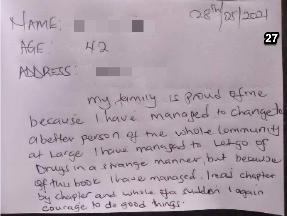 NAME:
28th/05/2021
27
AGE: 42
ADDRESS:
My family is proud of me
because I have managed to change to
a better person of the whole community
at large I have managed to let go of
Drugs in a strange manner, but because
of this book I have managed. I read chapter
by chapter and while of a sudden I again
courage to do good things.